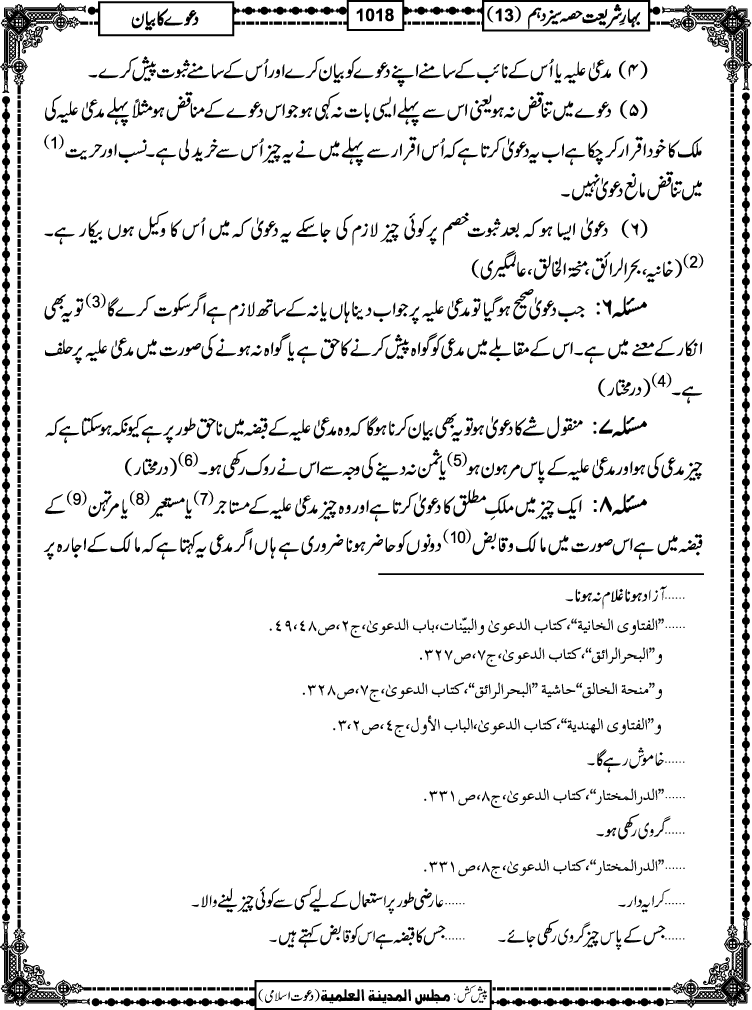 بہارِ شریعت حصہ سیزدہم (13)
1018
دعوے کا بیان
(۴) مدعیٰ علیہ یا اُس کے نائب کے سامنے اپنے دعوے کو بیان کرے اور اُس کے سامنے ثبوت پیش کرے۔
(۵) دعوے میں تناقض نہ ہو یعنی اس سے پہلے ایسی بات نہ کہی ہو جو اس دعوے کے مناقض ہو مثلاً پہلے مدعیٰ علیہ کی
ملک کا خود اقرار کر چکا ہے اب یہ دعویٰ کرتا ہے کہ اُس اقرار سے پہلے میں نے یہ چیز اُس سے خرید لی ہے۔ نسب اور حریت (1)
میں تناقض مانع دعویٰ نہیں۔
(۶) دعویٰ ایسا ہو کہ بعد ثبوت خصم پر کوئی چیز لازم کی جاسکے یہ دعویٰ کہ میں اُس کا وکیل ہوں بیکار ہے۔
(2) (خانیہ، بحرالرائق، منحۃ الخالق، عالمگیری)
مسئلہ ۶: جب دعویٰ صحیح ہو گیا تو مدعیٰ علیہ پر جواب دینا ہاں یا نہ کے ساتھ لازم ہے اگر سکوت کرے گا (3) تو یہ بھی
انکار کے معنے میں ہے۔ اس کے مقابلے میں مدعی کو گواہ پیش کرنے کا حق ہے یا گواہ نہ ہونے کی صورت میں مدعیٰ علیہ پر حلف
ہے۔ (4) (درمختار)
مسئلہ ۷: منقول شے کا دعویٰ ہو تو یہ بھی بیان کرنا ہوگا کہ وہ مدعیٰ علیہ کے قبضہ میں ناحق طور پر ہے کیونکہ ہوسکتا ہے کہ
چیز مدعی کی ہو اور مدعیٰ علیہ کے پاس مرہون ہو (5) یا ثمن نہ دینے کی وجہ سے اس نے روک رکھی ہو۔ (6) (درمختار)
مسئلہ ۸: ایک چیز میں ملکِ مطلق کا دعویٰ کرتا ہے اور وہ چیز مدعیٰ علیہ کے مستاجر (7) یا مستعیر (8) یا مرتہن (9) کے
قبضہ میں ہے اس صورت میں مالک و قابض (10) دونوں کو حاضر ہونا ضروری ہے ہاں اگر مدعی یہ کہتا ہے کہ مالک کے اجارہ پر
......آزاد ہونا غلام نہ ہونا۔
......”الفتاوی الخانیة“، کتاب الدعویٰ والبیّنات، باب الدعویٰ، ج۲، ص۴۸، ۴۹.
و”البحرالرائق“، کتاب الدعویٰ، ج۷، ص۳۲۷.
و”منحة الخالق“ حاشیة ”البحرالرائق“، کتاب الدعویٰ، ج۷، ص۳۲۸.
و”الفتاوی الهندیة“، کتاب الدعویٰ، الباب الأول، ج٤، ص۲، ۳.
......خاموش رہے گا۔
......”الدرالمختار“، کتاب الدعویٰ، ج۸، ص۳۳۱.
......گروی رکھی ہو۔
......”الدرالمختار“، کتاب الدعویٰ، ج۸، ص۳۳۱.
......کرایہ دار۔ ......عارضی طور پر استعمال کے لیے کسی سے کوئی چیز لینے والا۔
......جس کے پاس چیز گروی رکھی جائے۔ ......جس کا قبضہ ہے اس کو قابض کہتے ہیں۔
پیش کش: مجلس المدینة العلمیة (دعوت اسلامی)